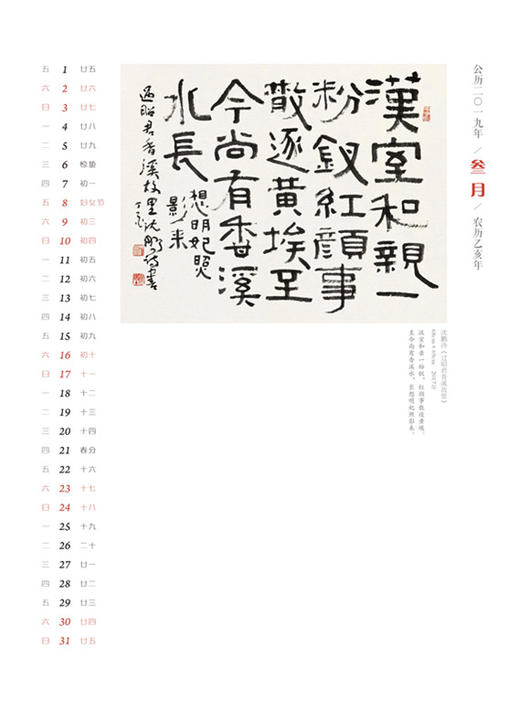 公历二〇一九年 / 叁月 / 农历乙亥年
漢室和親一
粉釵紅顔事
散逐黄埃至
今尚有香溪
水長
想明妃照
影来
過昭君香溪故里沈鵬诗書
丁亥
沈鹏诗《过昭君香溪故里》
汉室和亲一粉钗，红颜事散逐黄埃。
至今尚有香溪水，长想明妃照影来。
五 1 廿五
六 2 廿六
日 3 廿七
一 4 廿八
二 5 廿九
三 6 惊蛰
四 7 初一
五 8 妇女节
六 9 初三
日 10 初四
一 11 初五
二 12 初六
三 13 初七
四 14 初八
五 15 初九
六 16 初十
日 17 十一
一 18 十二
二 19 十三
三 20 十四
四 21 春分
五 22 十六
六 23 十七
日 24 十八
一 25 十九
二 26 二十
三 27 廿一
四 28 廿二
五 29 廿三
六 30 廿四
日 31 廿五